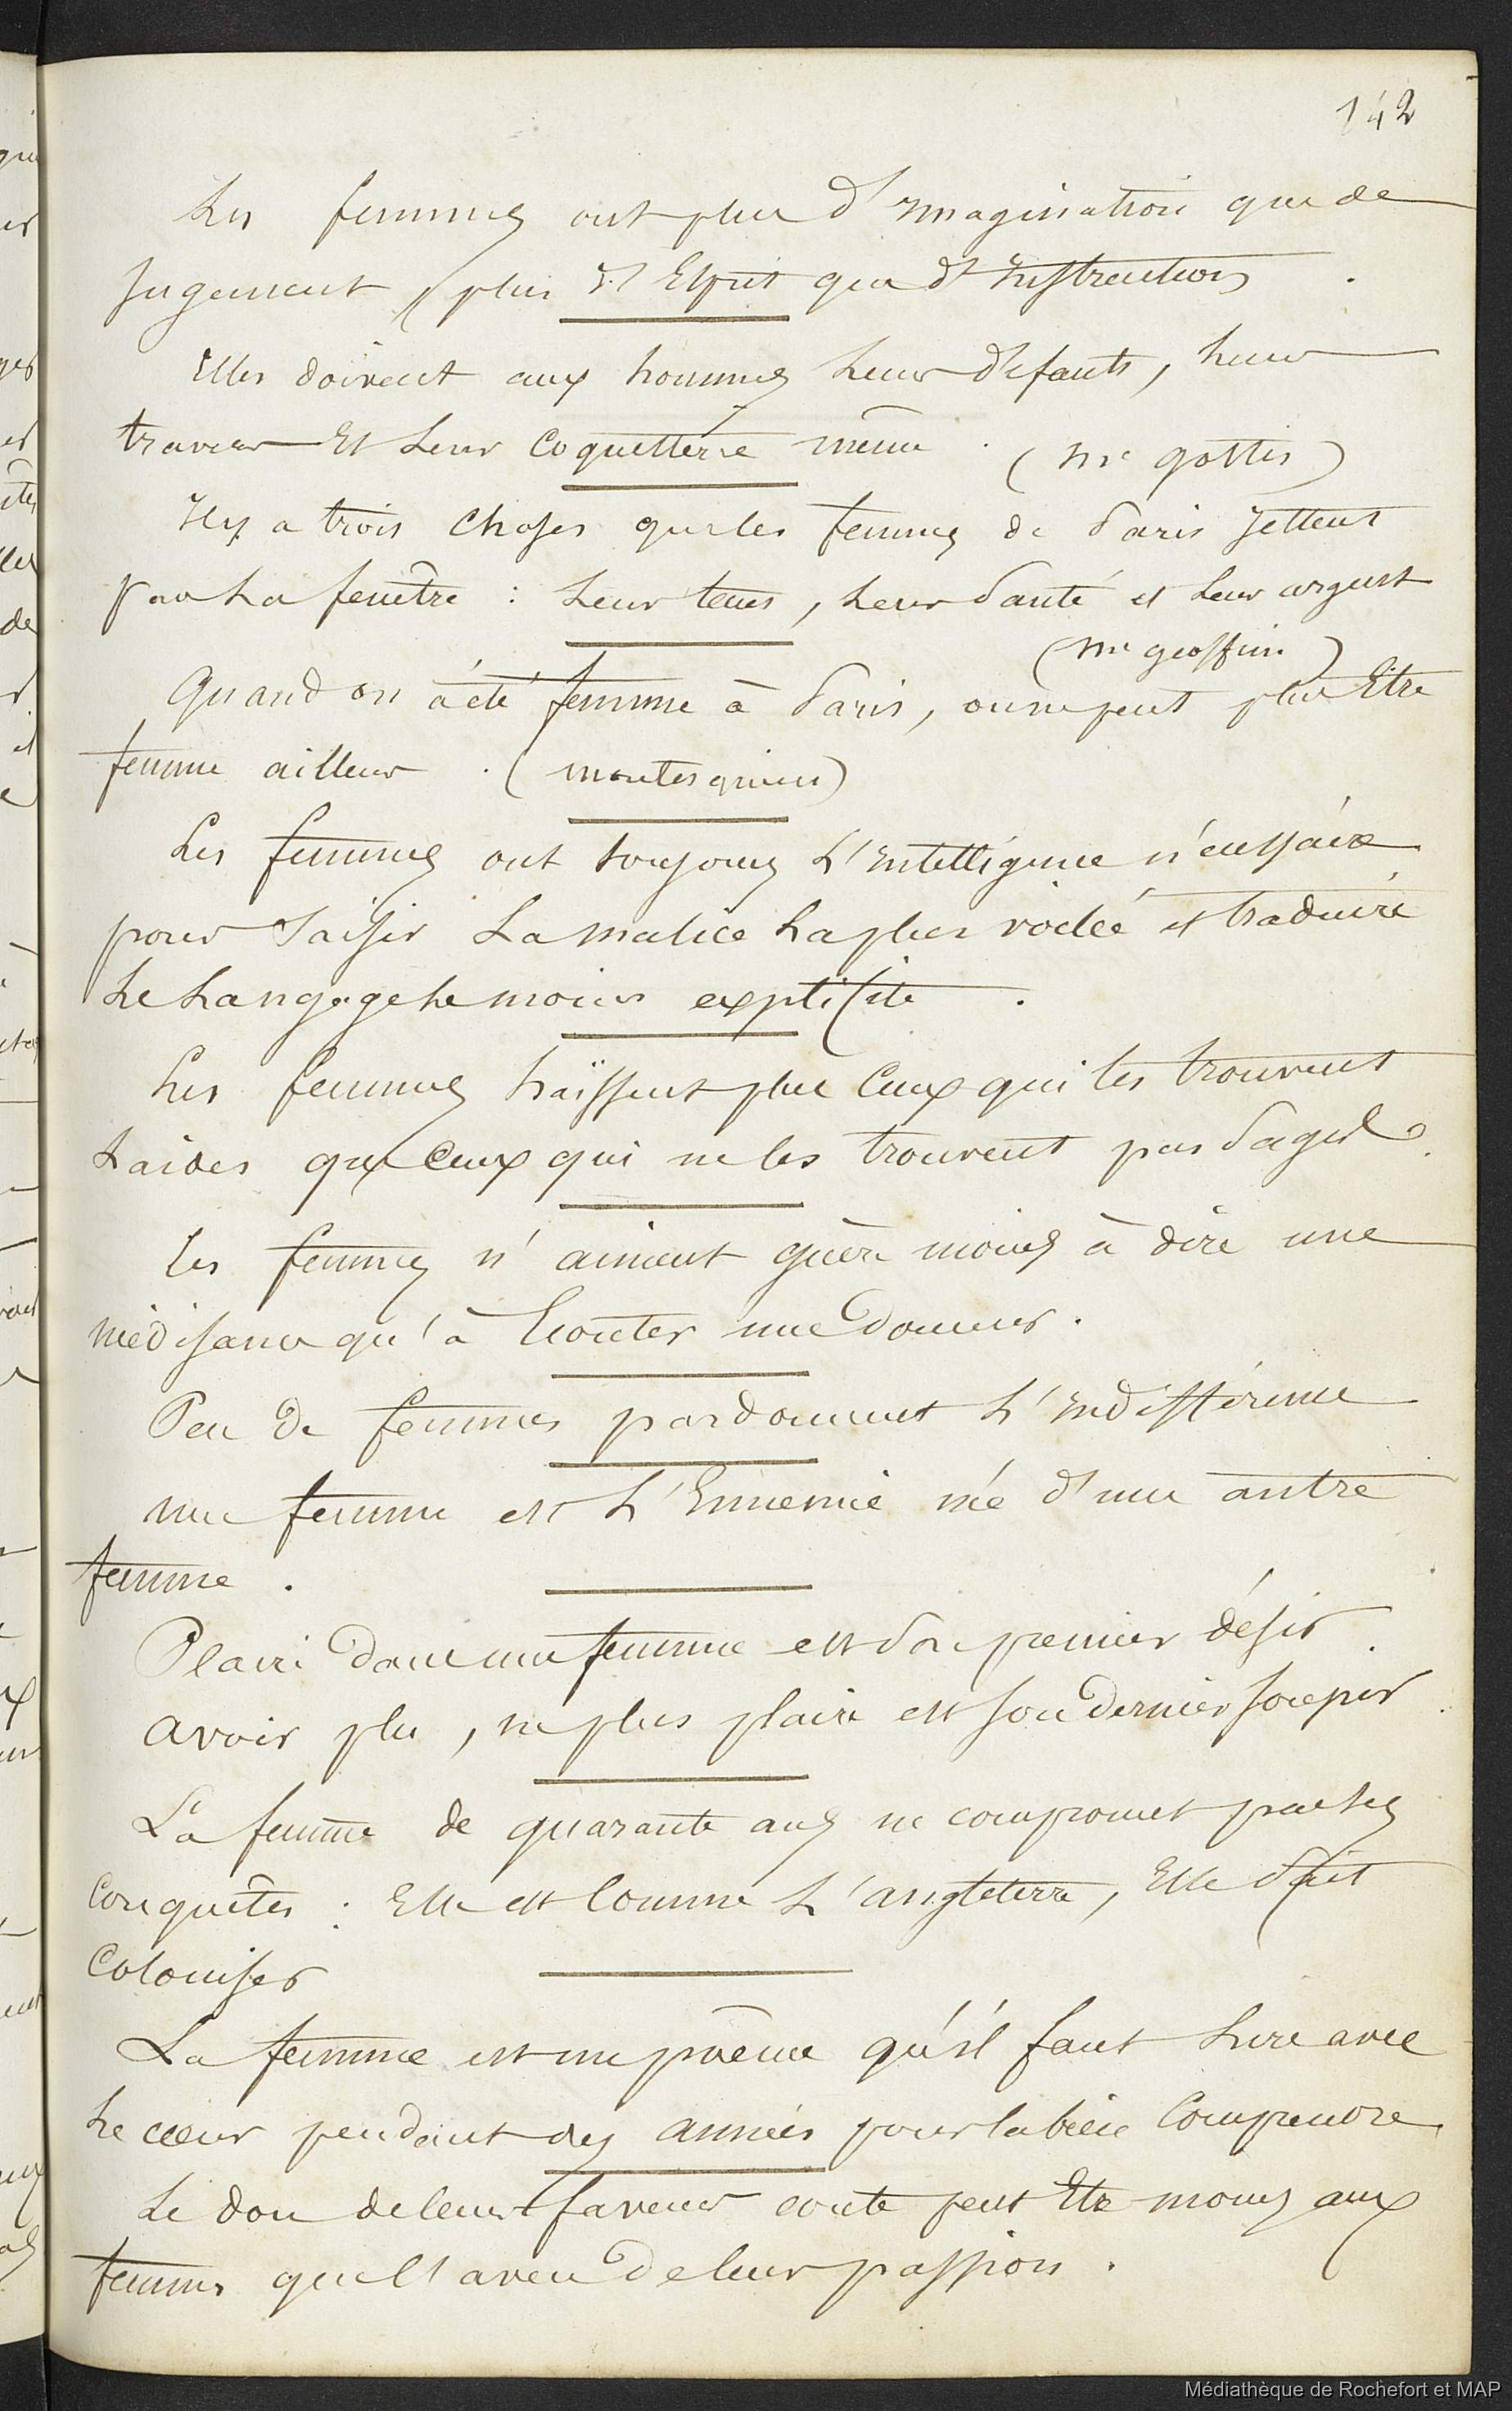 142
Les femmes ont plus d'imagination que de
jugement, plus d'Esprit que d'Instruction .
Elles doivent aux hommes leurs défauts, leurs
travers Et leur coquetterie même . (Me gottis)
Il y a trois choses que les femmes de Paris jettent
par la fenêtre : leur tems, leur Santé et leur argent
(Me geoffrin)
Quand on à été femme à Paris, on ne peut plus Etre
femme ailleurs . (montesquieu)
Les femmes ont toujours l'Intelligence nécessaire
pour saisir la malice la plus voilée et traduire
le langage le moins explicite .
Les femmes haïssent plus Ceux qui les trouvent
laides que Ceux qui ne les trouvent pas Sages.
les femmes n'aiment guère moins à dire une
médisance qu'à Ecouter une douceur.
Peu de femmes pardonnent l'Indifférence
une femme est l'Ennemie née d'une autre
femme .
Plaire dans une femme est Son premier désir.
avoir plu, ne plus plaire est son dernier soupir.
La femme de quarante ans ne compromet pas ses
Conquêtes : Elle est Comme l'angleterre, Elle Sait
Coloniser
La femme est un poême qu'il faut lire avec
le cœur pendant des années pour la bien Comprendre
Le don de leurs faveurs coute peut Etre moins aux
femmes que l'aveu de leur passion .
Médiathèque de Rochefort et MAP